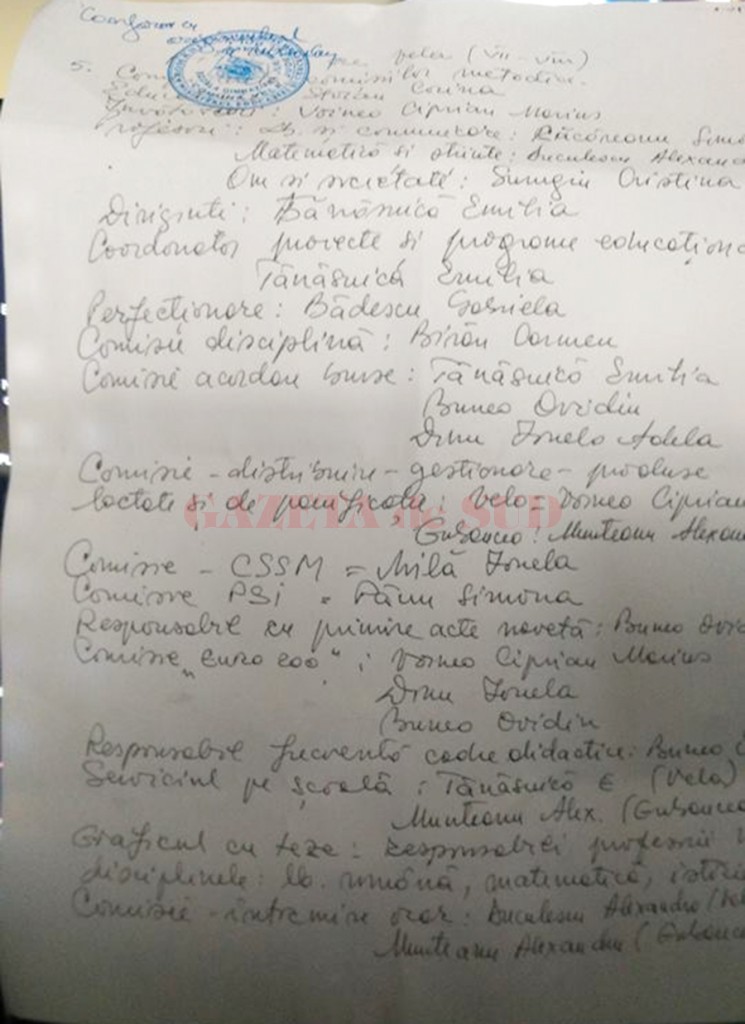 Conform cu
originalul
pe vela (VII-VIII)
5. comisiilor metodice
Stoian Corina
: Voineo Ciprian Marius
Profesori: Lb. si comunicare:
Matematică si științe: Buculescu Alexand
Om si societate: Surugiu Cristina
Diriginti: Tănăsuică Emilia
Coordonator proiecte si programe educaționa
Tănăsuică Emilia
Perfecționare: Bădescu Gabriela
Comisie disciplină: Birău Carmen
Comisie acordau burse: Tănăsuică Emilia
Buneo Ovidiu
Dinu Ionela Adela
Comisie - distribuire - gestionare - produse
lactate și de panificație: Vela = Voineo Ciprian
GAZETA de SUD
: Munteanu Alexan
Comisie - CSSM = Milă Ionela
Comisie PSI = Pănu Simona
Responsabil cu primire acte : Buneo Ovid
Comisie "euro 200": Voineo Ciprian Marius
Dinu Ionela
Buneo Ovidiu
Responsabil frecvență cadre didactice: Buneo
Serviciul pe școală: Tănăsuică E (Vela)
Munteanu Alex.
Graficul cu teze: responsabili profesorii
disciplinele: lb. română, matematică, istorie
Comisie - întocmire orar: Buculescu Alexandra
Munteanu Alexandru